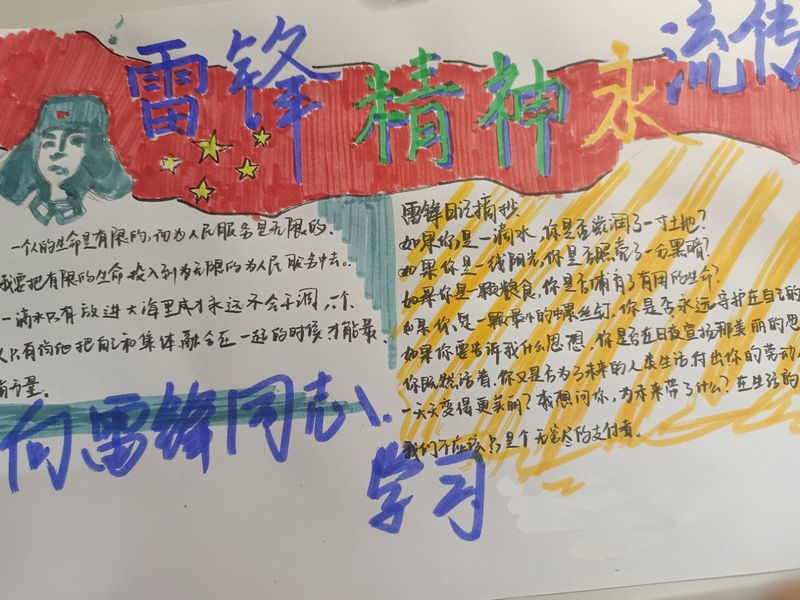 雷锋精神永流传
一个人的生命是有限的,而为人民服务是无限的.
我要把有限的生命投入到为无限的为人民服务中去.
一滴水只有放进大海里或才永远不会干涸,一个
人只有当他把自己和集体融合在一起的时候才能最
有力量.
向雷锋同志
学习
雷锋日记摘抄
如果你是一滴水,你是否滋润了一寸土地?
如果你是一线阳光,你是否照亮了一分黑暗?
如果你是一颗粮食,你是否哺育了有用的生命?
如果你是一颗最小的螺丝钉,你是否永远守护在自己的
如果你要告诉我什么思想,你是否在日夜宣扬那美丽的思
你既然活着,你又是否为了未来的人类生活付出你的劳动
一天天变得更美丽?我想问你,为未来带了什么?在生活的
我们不应该只是个无穷尽的支付者.